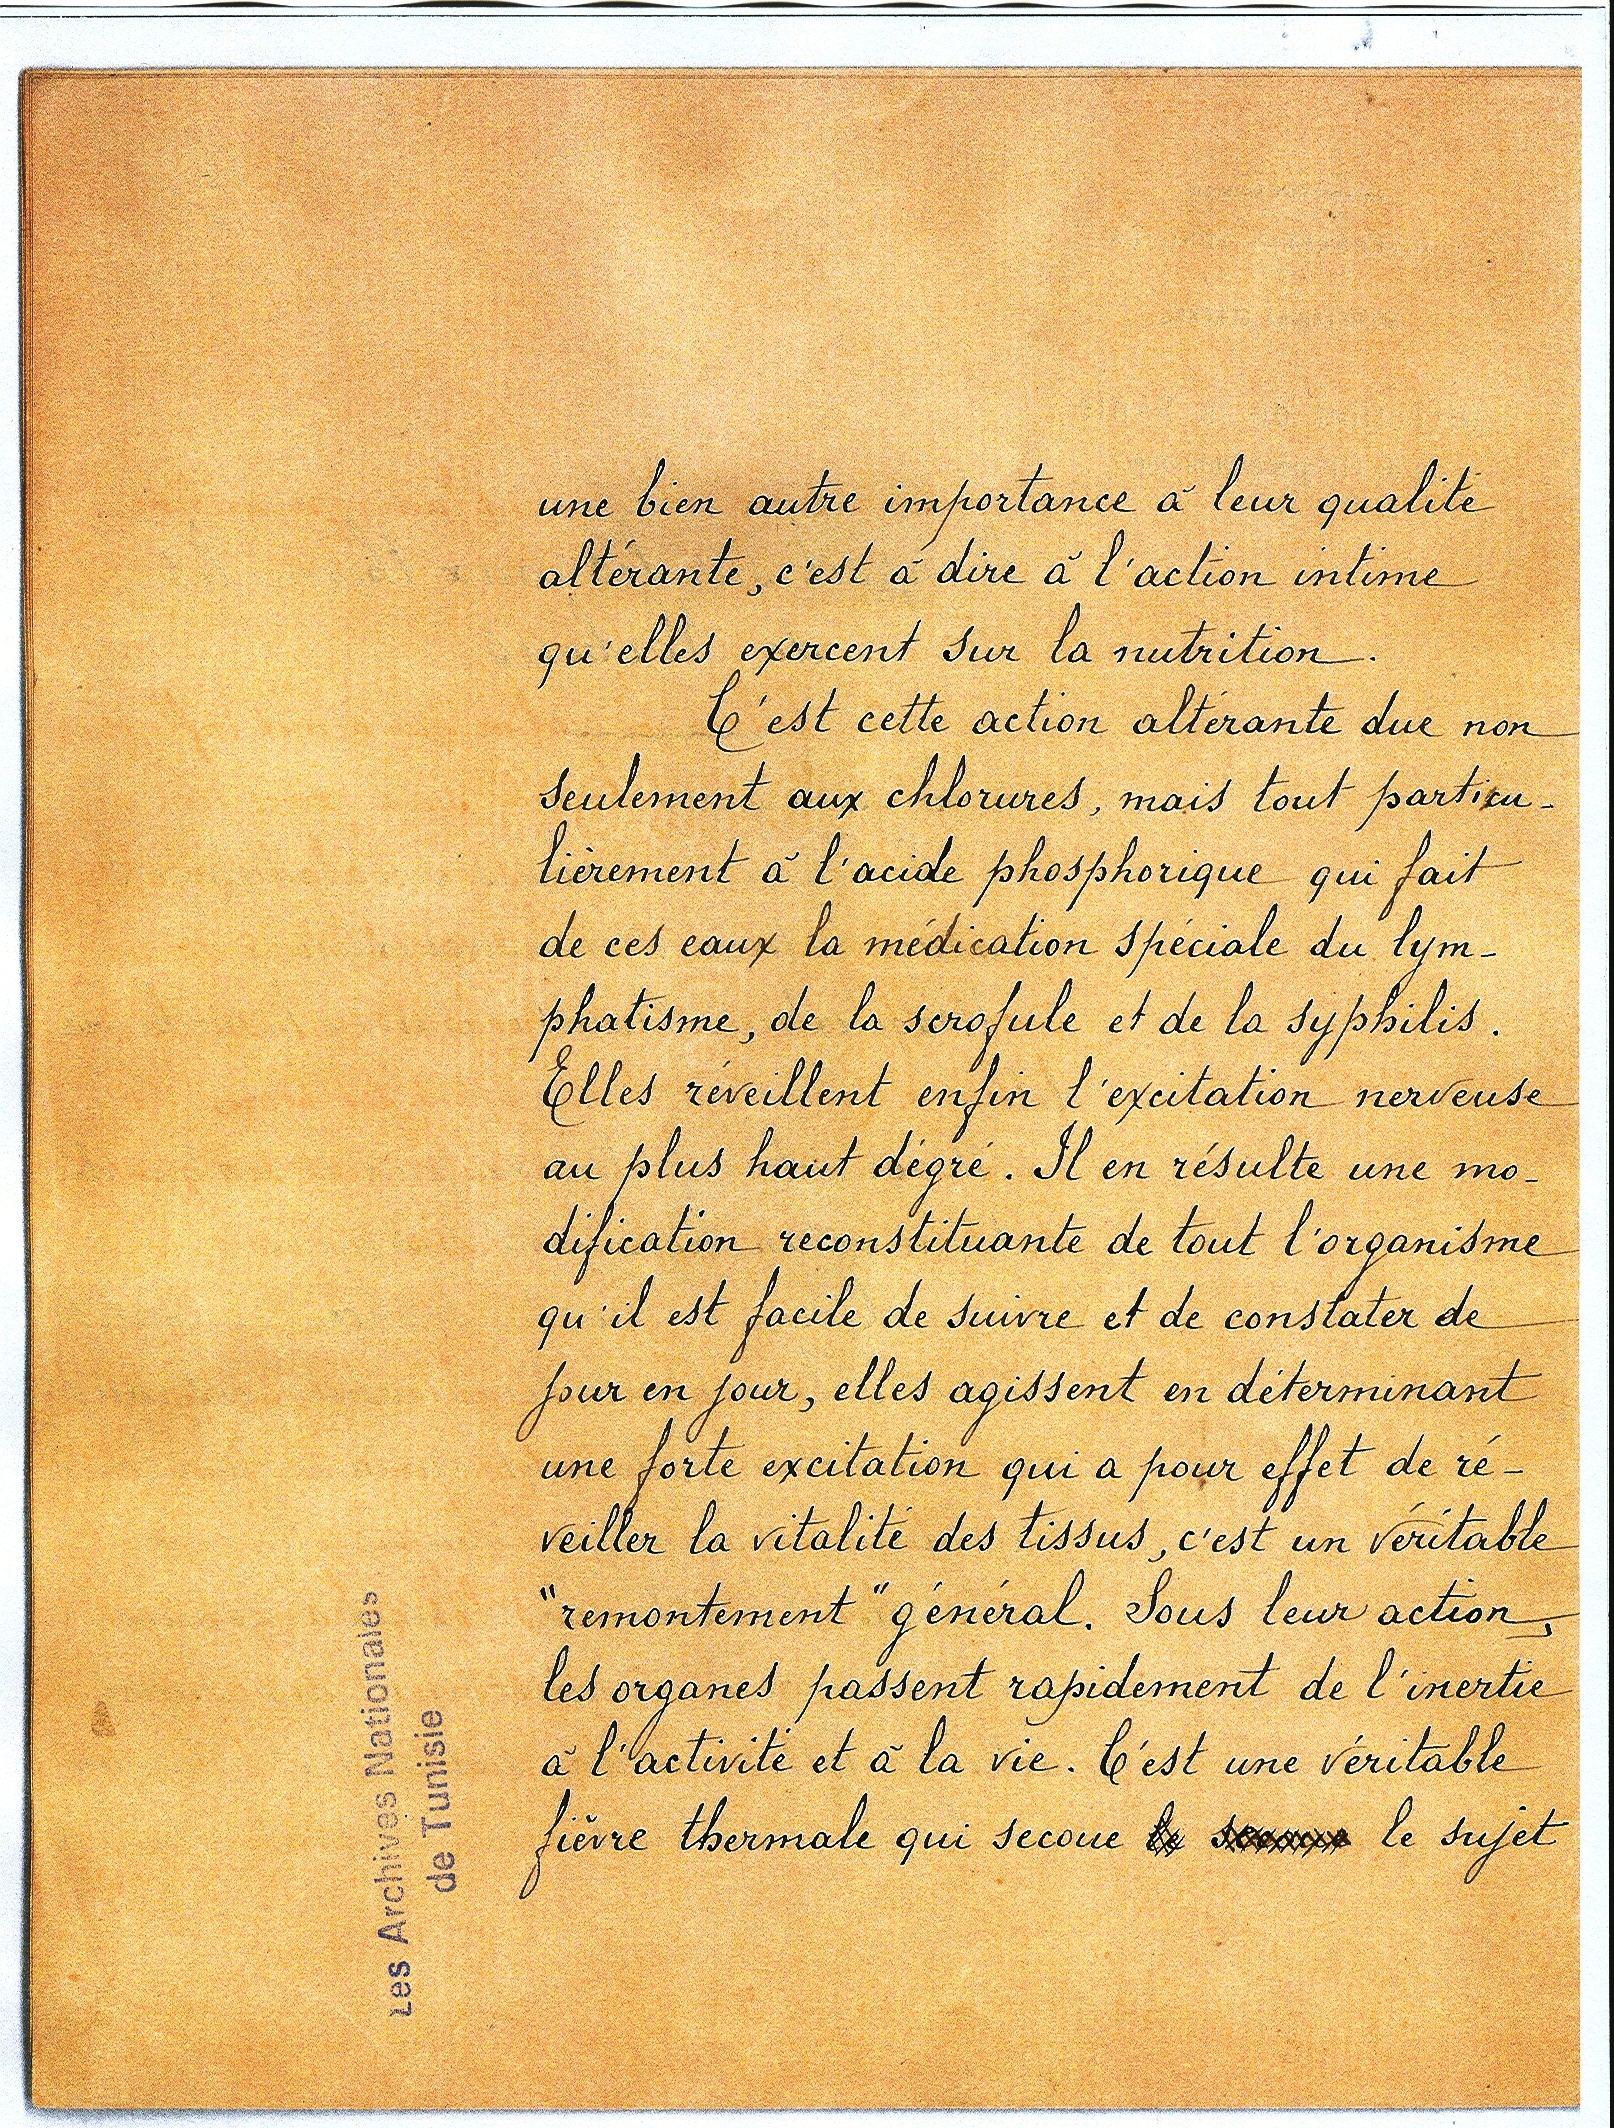 une bien autre importance à leur qualité
altérante, c'est à dire à l'action intime
qu'elles exercent sur la nutrition.
C'est cette action altérante due non
seulement aux chlorures, mais tout particu-
lièrement à l'acide phosphorique qui fait
de ces eaux la médication spéciale du lym-
phatisme, de la scrofule et de la syphilis.
Elles réveillent enfin l'excitation nerveuse
au plus haut dégré. Il en résulte une mo-
dification reconstituante de tout l'organisme
qu'il est facile de suivre et de constater de
jour en jour, elles agissent en déterminant
une forte excitation qui a pour effet de ré-
veiller la vitalité des tissus, c'est un véritable
"remontement" général. Sous leur action,
les organes passent rapidement de l'inertie
à l'activité et à la vie. C'est une véritable
fièvre thermale qui secoue le sujet
Les Archives Nationales
de Tunisie